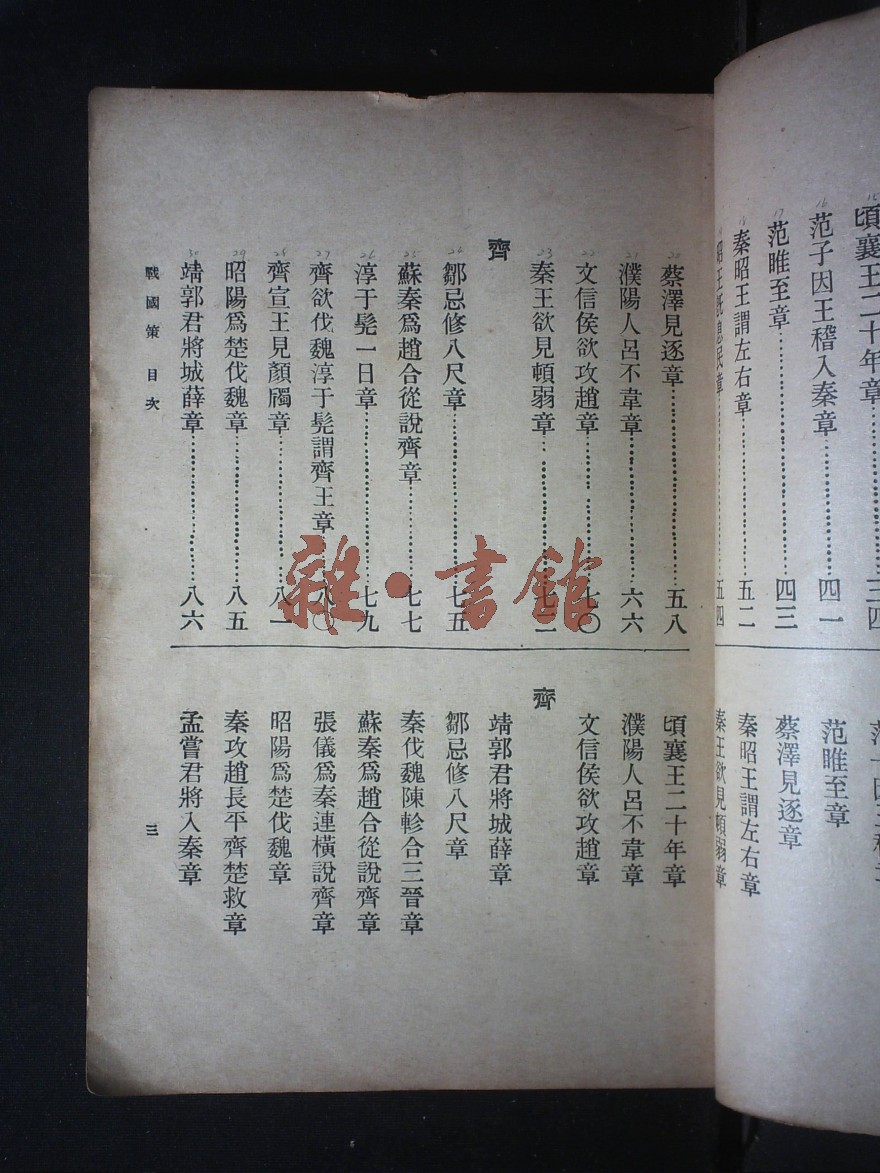 頃襄王二十年章……三四
范子因王稽入秦章……四一
范睢至章……四三
秦昭王謂左右章……五二
五四
范睢至章
蔡澤見逐章
秦昭王謂左右章
秦王欲見頓弱章
蔡澤見逐章……五八
濮陽人呂不韋章……六六
文信侯欲攻趙章……七〇
秦王欲見頓弱章……七二
齊
鄒忌修八尺章……七五
蘇秦爲趙合從說齊章……七七
淳于髡一日章……七九
齊欲伐魏淳于髡謂齊王章……八〇
齊宣王見顏斶章……八一
昭陽爲楚伐魏章……八五
靖郭君將城薛章……八六
頃襄王二十年章
濮陽人呂不韋章
文信侯欲攻趙章
齊
靖郭君將城薛章
鄒忌修八尺章
秦伐魏陳軫合三晉章
蘇秦爲趙合從說齊章
張儀爲秦連橫說齊章
昭陽爲楚伐魏章
秦攻趙長平齊楚救章
孟嘗君將入秦章
戰國策 目次
三
雜·書館